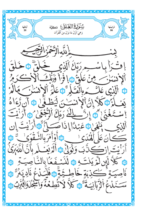 سُورَةُ الْعَلَقِ
بِسْمِ اللَّهِ الرَّحْمَٰنِ الرَّحِيمِ
اقْرَأْ بِاسْمِ رَبِّكَ الَّذِي خَلَقَ خَلَقَ
الْإِنسَانَ مِنْ عَلَقٍ اقْرَأْ وَرَبُّكَ الْأَكْرَمُ
الَّذِي عَلَّمَ بِالْقَلَمِ عَلَّمَ الْإِنسَانَ مَا لَمْ
يَعْلَمْ كَلَّا إِنَّ الْإِنسَانَ لَيَطْغَىٰ أَن رَّآهُ
اسْتَغْنَىٰ إِنَّ إِلَىٰ رَبِّكَ الرُّجْعَىٰ أَرَأَيْتَ
الَّذِي يَنْهَىٰ عَبْدًا إِذَا صَلَّىٰ أَرَأَيْتَ إِن
كَانَ عَلَى الْهُدَىٰ أَوْ أَمَرَ بِالتَّقْوَىٰ
أَرَأَيْتَ إِن كَذَّبَ وَتَوَلَّىٰ أَلَمْ يَعْلَم بِأَنَّ اللَّهَ يَرَىٰ
كَلَّا لَئِن لَّمْ يَنتَهِ لَنَسْفَعًا بِالنَّاصِيَةِ
نَاصِيَةٍ كَاذِبَةٍ خَاطِئَةٍ فَلْيَدْعُ نَادِيَهُ
سَنَدْعُ الزَّبَانِيَةَ كَلَّا لَا تُطِعْهُ وَاسْجُدْ وَاقْتَرِب